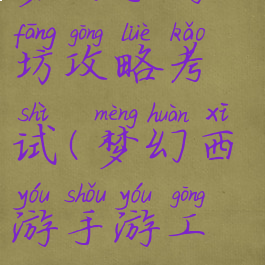 fāng gōng lüè kǎo
坊攻略考
shì mèng huàn xī
试(梦幻西
yóu shǒu yóu gōng
游手游工